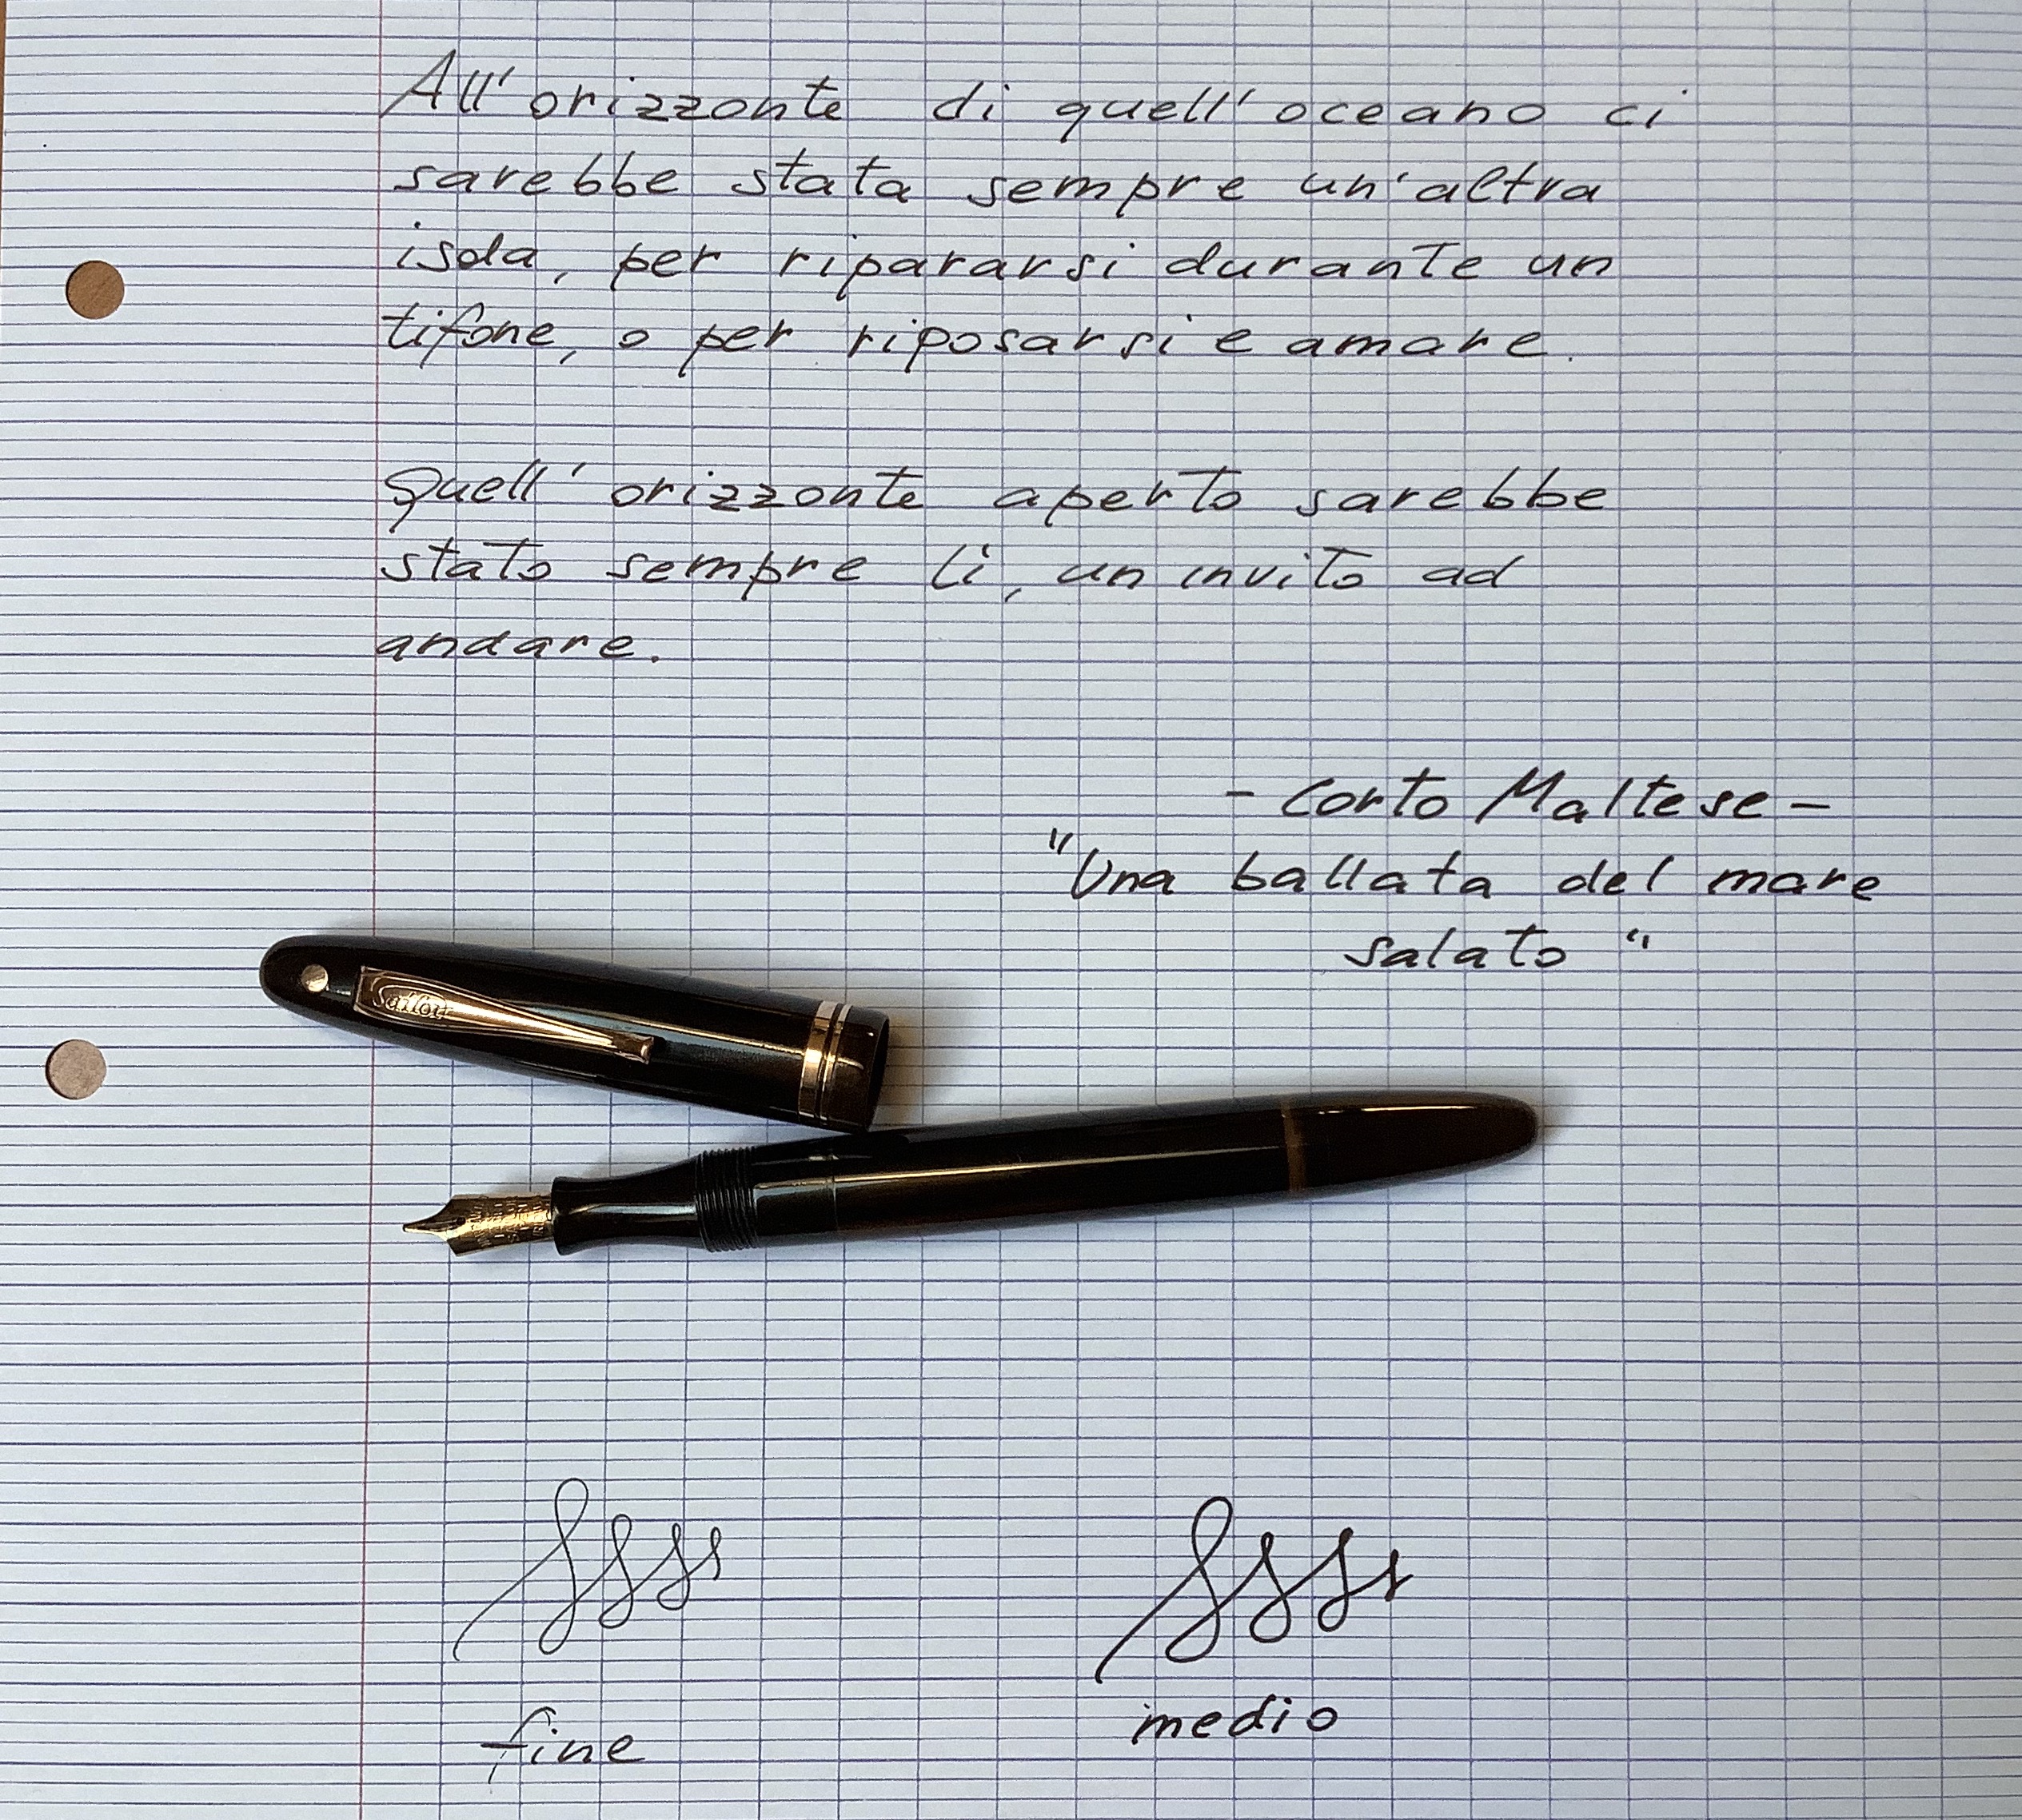 All'orizzonte di quell'oceano ci
sarebbe stata sempre un'altra
isola, per ripararsi durante un
tifone, o per riposarsi e amare.
Quell'orizzonte aperto sarebbe
stato sempre lì, un invito ad
andare.
- Corto Maltese -
"Una ballata del mare
salato"
Sailor
fine
medio